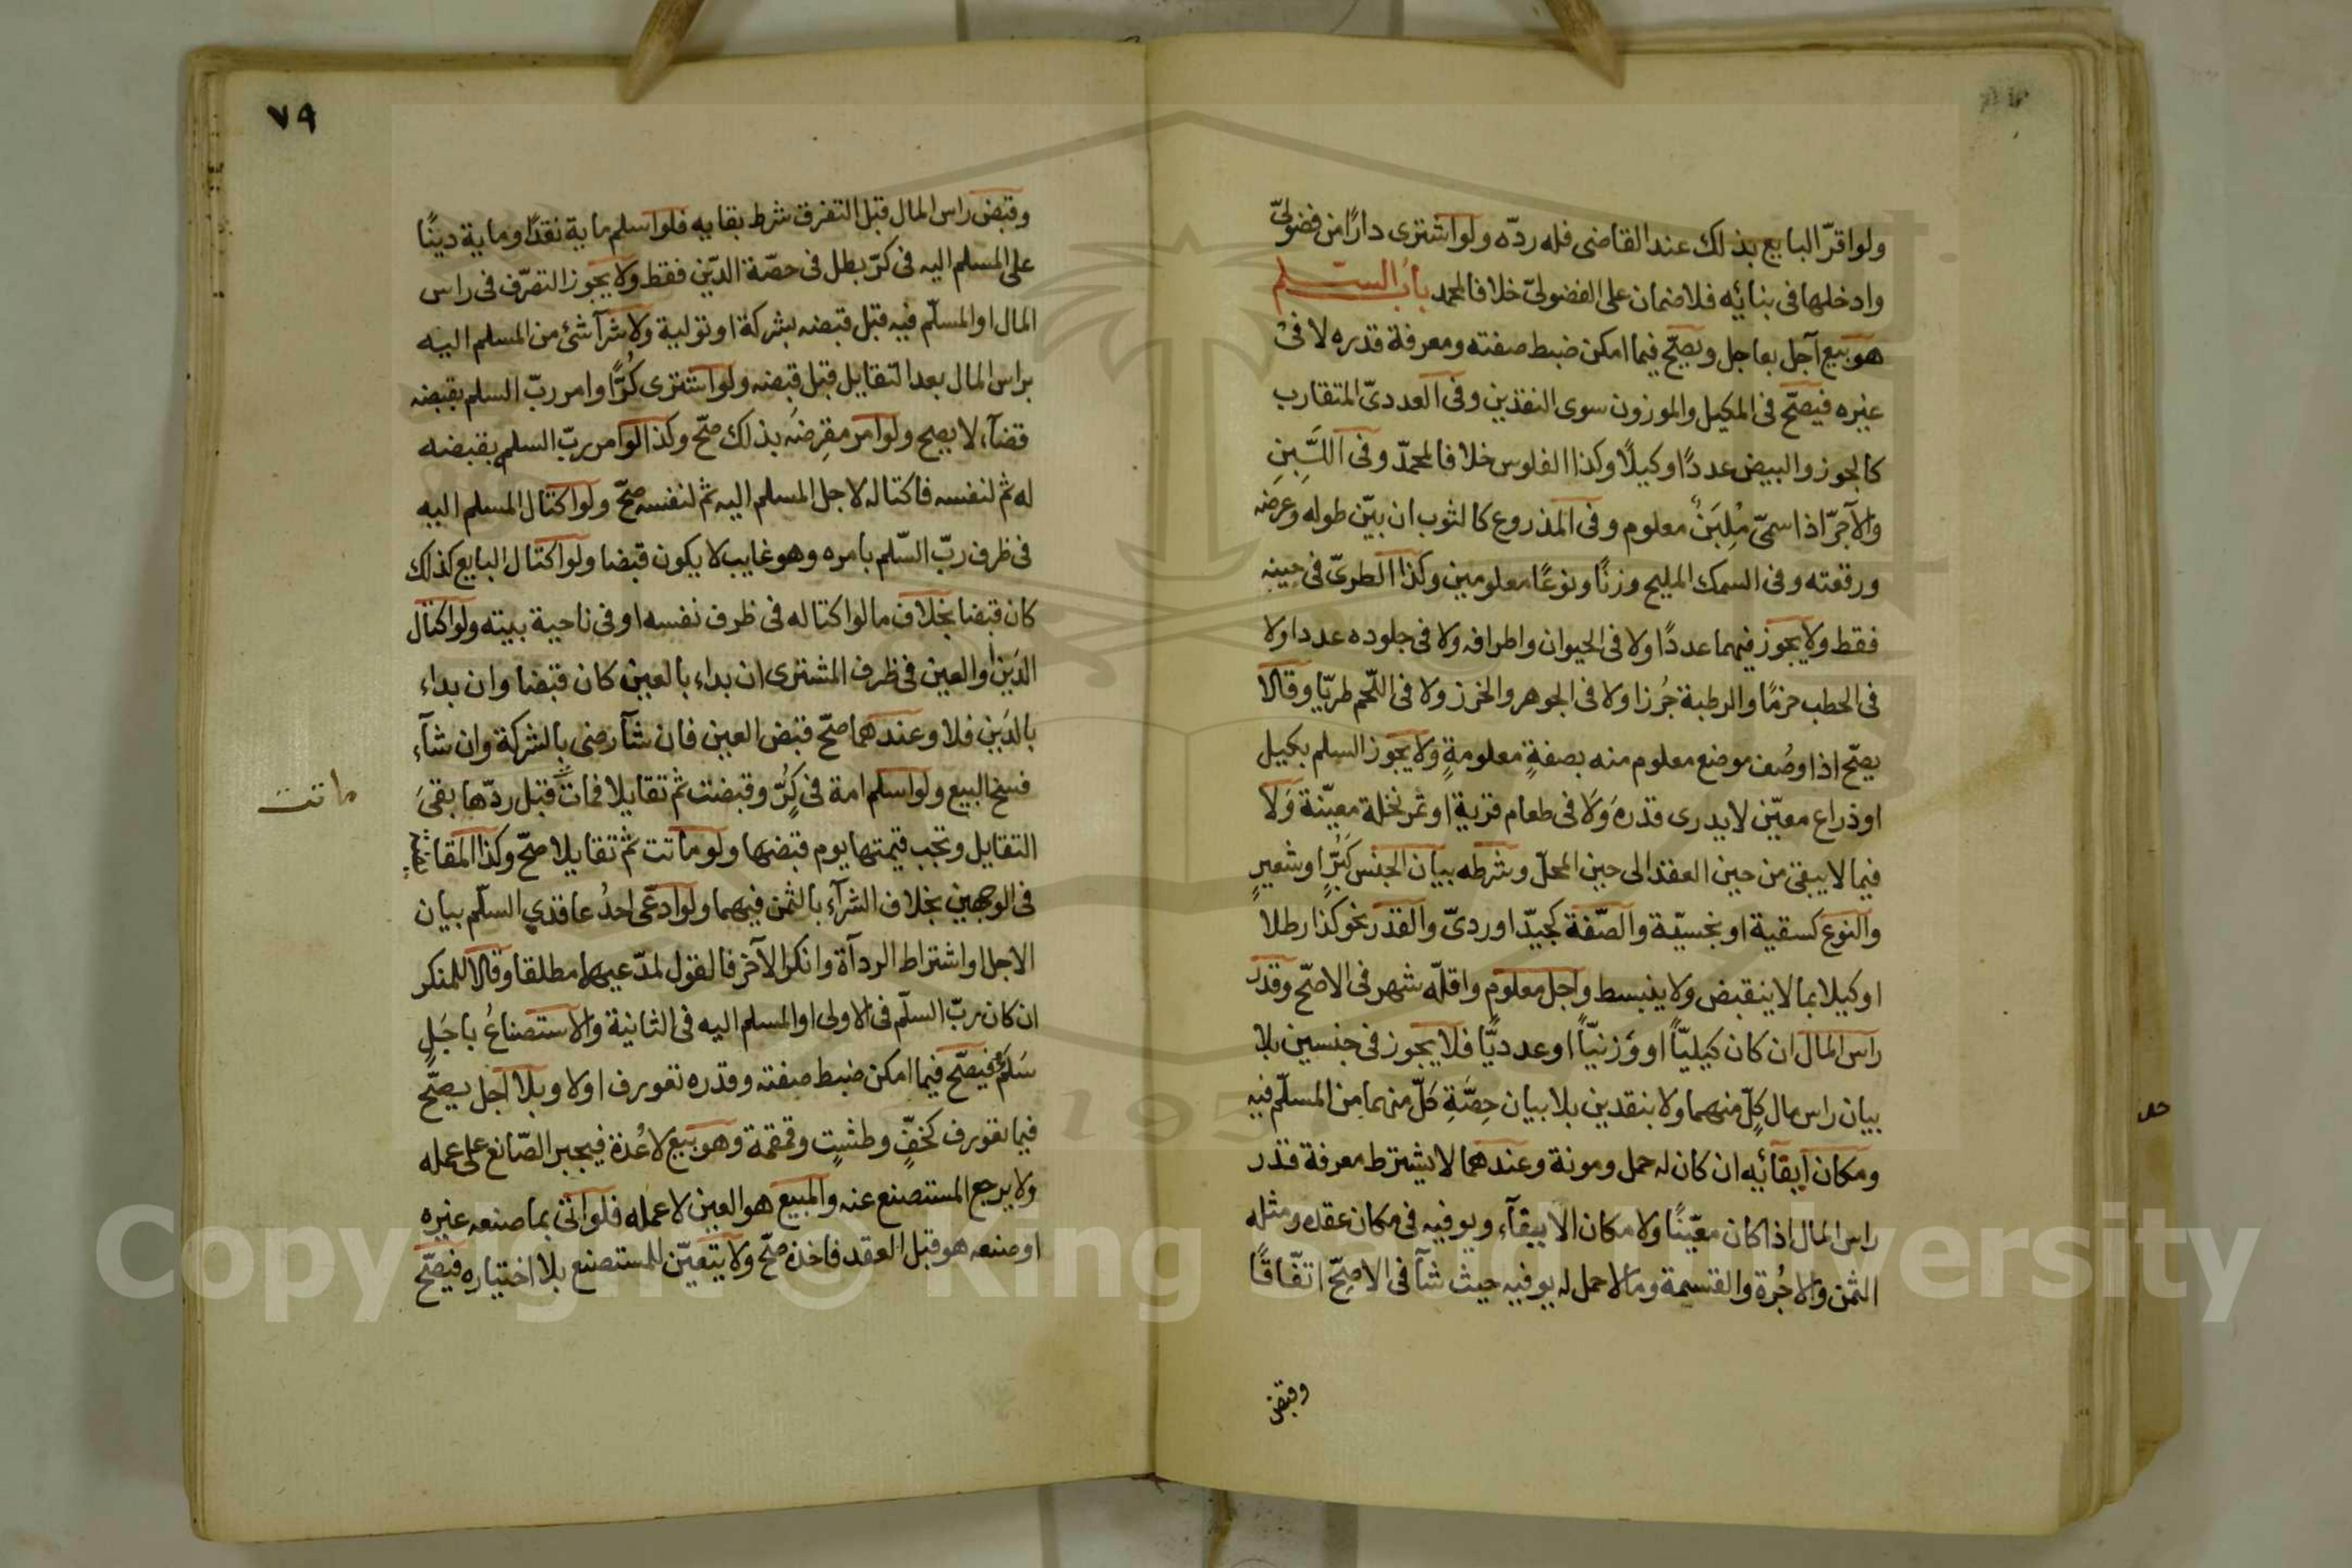 ولو اقرّ البايع بذلك عند القاضى فله ردّه ولو اشترى دارًا من فضولىّ
وادخلها فى بنائه فلا ضمان على الفضولىّ خلافا لمحمد باب السلم
هو بيع آجل بعاجل ويصحّ فيما امكن ضبط صفته ومعرفة قدره لا فى
غيره فيصحّ فى المكيل والموزون سوى النقدين وفى العددىّ المتقارب
كالجوز والبيض عددًا وكيلًا وكذا الفلوس خلافا لمحمدّ وفى اللَّبِنِ
والآجرّ اذا سمىّ مُلِبَنٌ معلوم وفى المذروع كالثوب ان بيّن طوله وعرضه
ورقعته وفى السمك المليح وزنًا ونوعًا معلومين وكذا الطرىّ فى حينه
فقط ولا يجوز فيهما عددًا ولا فى الحيوان واطرافه ولا فى جلوده عددا ولا
فى الحطب حزمًا والرطبة جُرزا ولا فى الجوهر والخرز ولا فى اللّحم طريّا وقالا
يصحّ اذا وصُف موضع معلوم منه بصفةٍ معلومةٍ ولا يجوز السلم بكيل
او ذراع معيّن لا يدرى قدره وَلَا فى طعام قرية او ثمر نخلة معيّنة وَلَا
فيما لا يبقى من حين العقد الى حين المحلّ وشرطه بيان الجنس كَبُرٍّ او شعيرٍ
والنوع كسقية او بخسيّة والصّفة كجيّد او ردىّ والقدر نحو كذا رطلًا
او كيلا بما لا ينقبض ولا ينبسط واجل معلوم واقلّه شهر فى الاصحّ وقدر
راس المال ان كان كيليّاً او وَزنيّاً او عدديًّا فلا يجوز فى جنسين بلا
بيان راس مال كلٍّ منهما ولا بنقدين بلا بيان حِصَّةِ كلّ منهما من المسلّم فيه
ومكان ايقائه ان كان له حمل ومونة وعندهما لا يشترط معرفة قدر
راس المال اذا كان معيّنًا ولا مكان الايفآء ويوفيه فى مكان عقده ومثله
الثمن والاجُرة والقسمة وما لا حمل له يوفيه حيث شآ فى الاصحّ اتفّاقًا
وقبض
٧٩
وقبض راس المال قبل التفرق شرط بقايه فلو اسلم ماية نقدًا وماية دينًا
على المسلم اليه فى كرّ بطل فى حصّة الدّين فقط ولا يجوز التصرّف فى راس
المال او المسلّم فيه قبل قبضه بشركة او تولية ولا شرآ شئ من المسلم اليه
براس المال بعد التقايل قبل قبضه ولو اشترى كُرًّا وامر ربّ السلم بقبضه
قضآء لا يصح ولو امر مقرِضَه بذلك صحّ وكذا لو امر ربّ السلم بقبضه
له ثم لنفسه فاكتاله لاجل المسلم اليه ثم لنفسه صحّ ولو اكتال المسلم اليه
فى ظرف ربّ السّلم بامره وهو غايب لا يكون قبضا ولو اكتال البايع كذلك
كان قبضا بخلاف ما لو اكتاله فى ظرف نفسه او فى ناحية بيته ولو اكتال
الدَين والعين فى ظرف المشترى ان بداء بالعين كان قبضا وان بداء
بالدَين فلا وعندهما صحّ قبض العين فان شآ رضى بالشركة وان شآء
فسخ البيع ولو اسلم امة فى كُرٍّ وقبضت ثم تقايلا فمات قبل ردّها بقىَ
ماتت
التقايل وتجب قيمتها يوم قبضها ولو ماتت ثم تقايلا صحّ وكذا المقايضة
فى الوجهين بخلاف الشرآء بالثمن فيهما ولو ادعّى احدُ عاقدي السلّم بيان
الاجل او اشتراط الردآة وانكر الآخر فالقول لمدّعيهما مطلقا وقالا للمنكر
ان كان ربّ السلّم فى الاولى او المسلم اليه فى الثانية والاستصناعُ باجَلٍ
سَلَمٌ فيصّح فيما امكن ضبط صفته وقدره تعورف اولا وبلا اجل يصحّ
فيما تعورف كخفٍّ وطشتٍ وقمقمة وهو بيع لا عُدة فيجبر الصّانع على عمله
ولا يرجع المستصنع عنه والمبيع هو العين لا عمله فلو اتى بما صنعه غيره
او صنعه هو قبل العقد فاخذه صحّ ولا يتعيّن للمستصنع بلا اختياره فيصّح
Copyright © King Saud University
1957